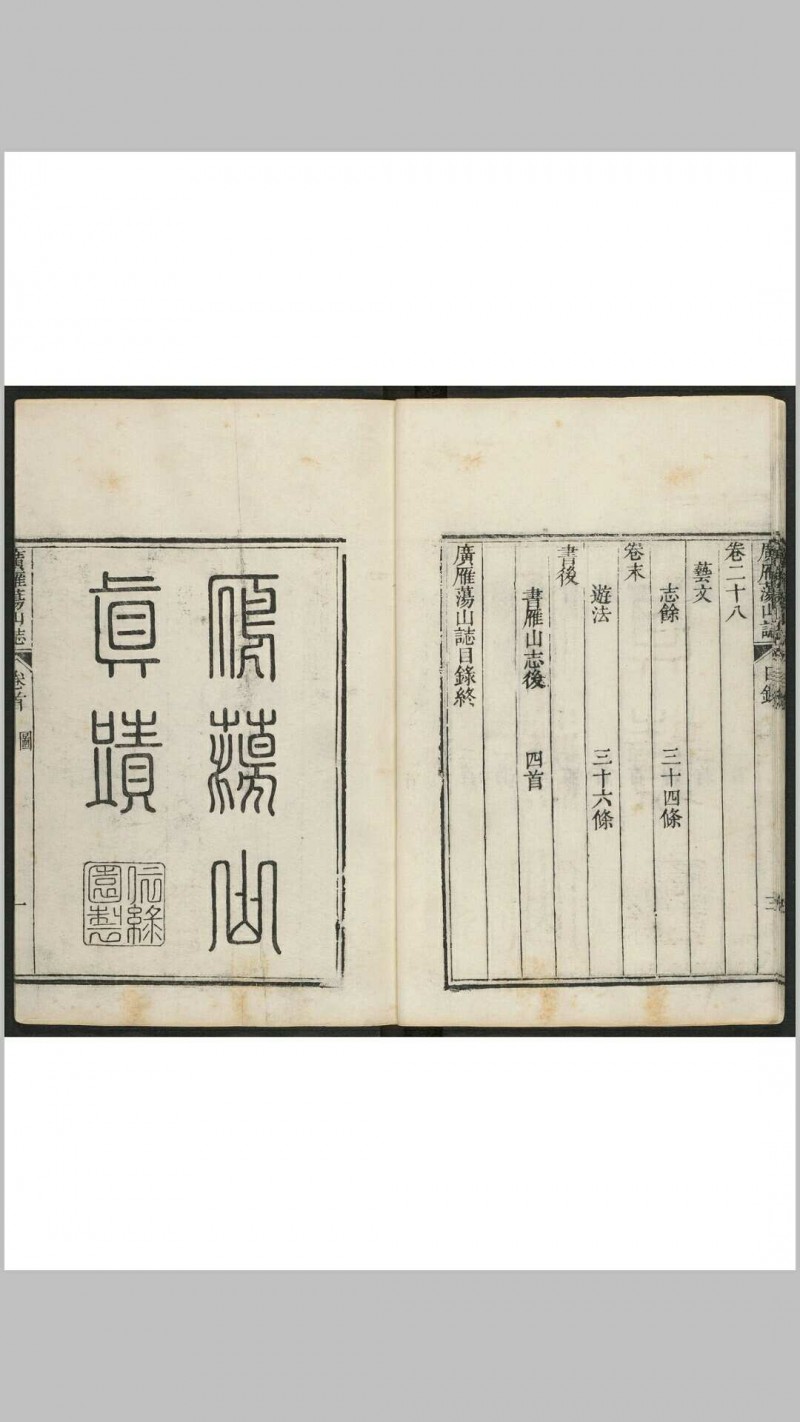 廣雁蕩山誌 目錄
卷二十八
藝文
志餘 三十四條
卷末
遊法 三十六條
書後
書雁山志後 四首
廣雁蕩山誌目錄終
雁蕩山
眞蹟
依綠
園製
廣雁蕩山誌 卷首 圖 一